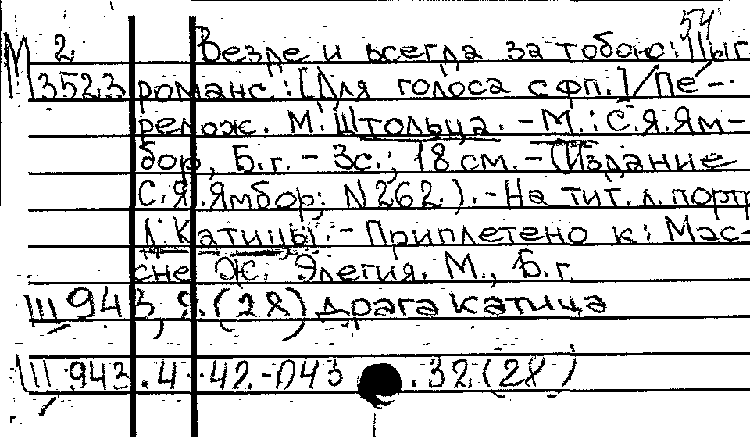 54
М 2 Везде и всегда за тобою: Цыг.
13523 романс: [Для голоса с фп.] / Пе-
релож. М. Штольца. - М.: С.Я. Ям-
бор, Б.г. - 3с.; 18 см. - (Издание
С.Я. Ямбор; N 262.). - На тит. л. портр.
Л. Катицы. - Приплетено к: Мас-
сне Ж. Элегия. М., Б.г.
III 943, 9.(28) Драга Катица
III 943.4 42.-П43 .32(28)